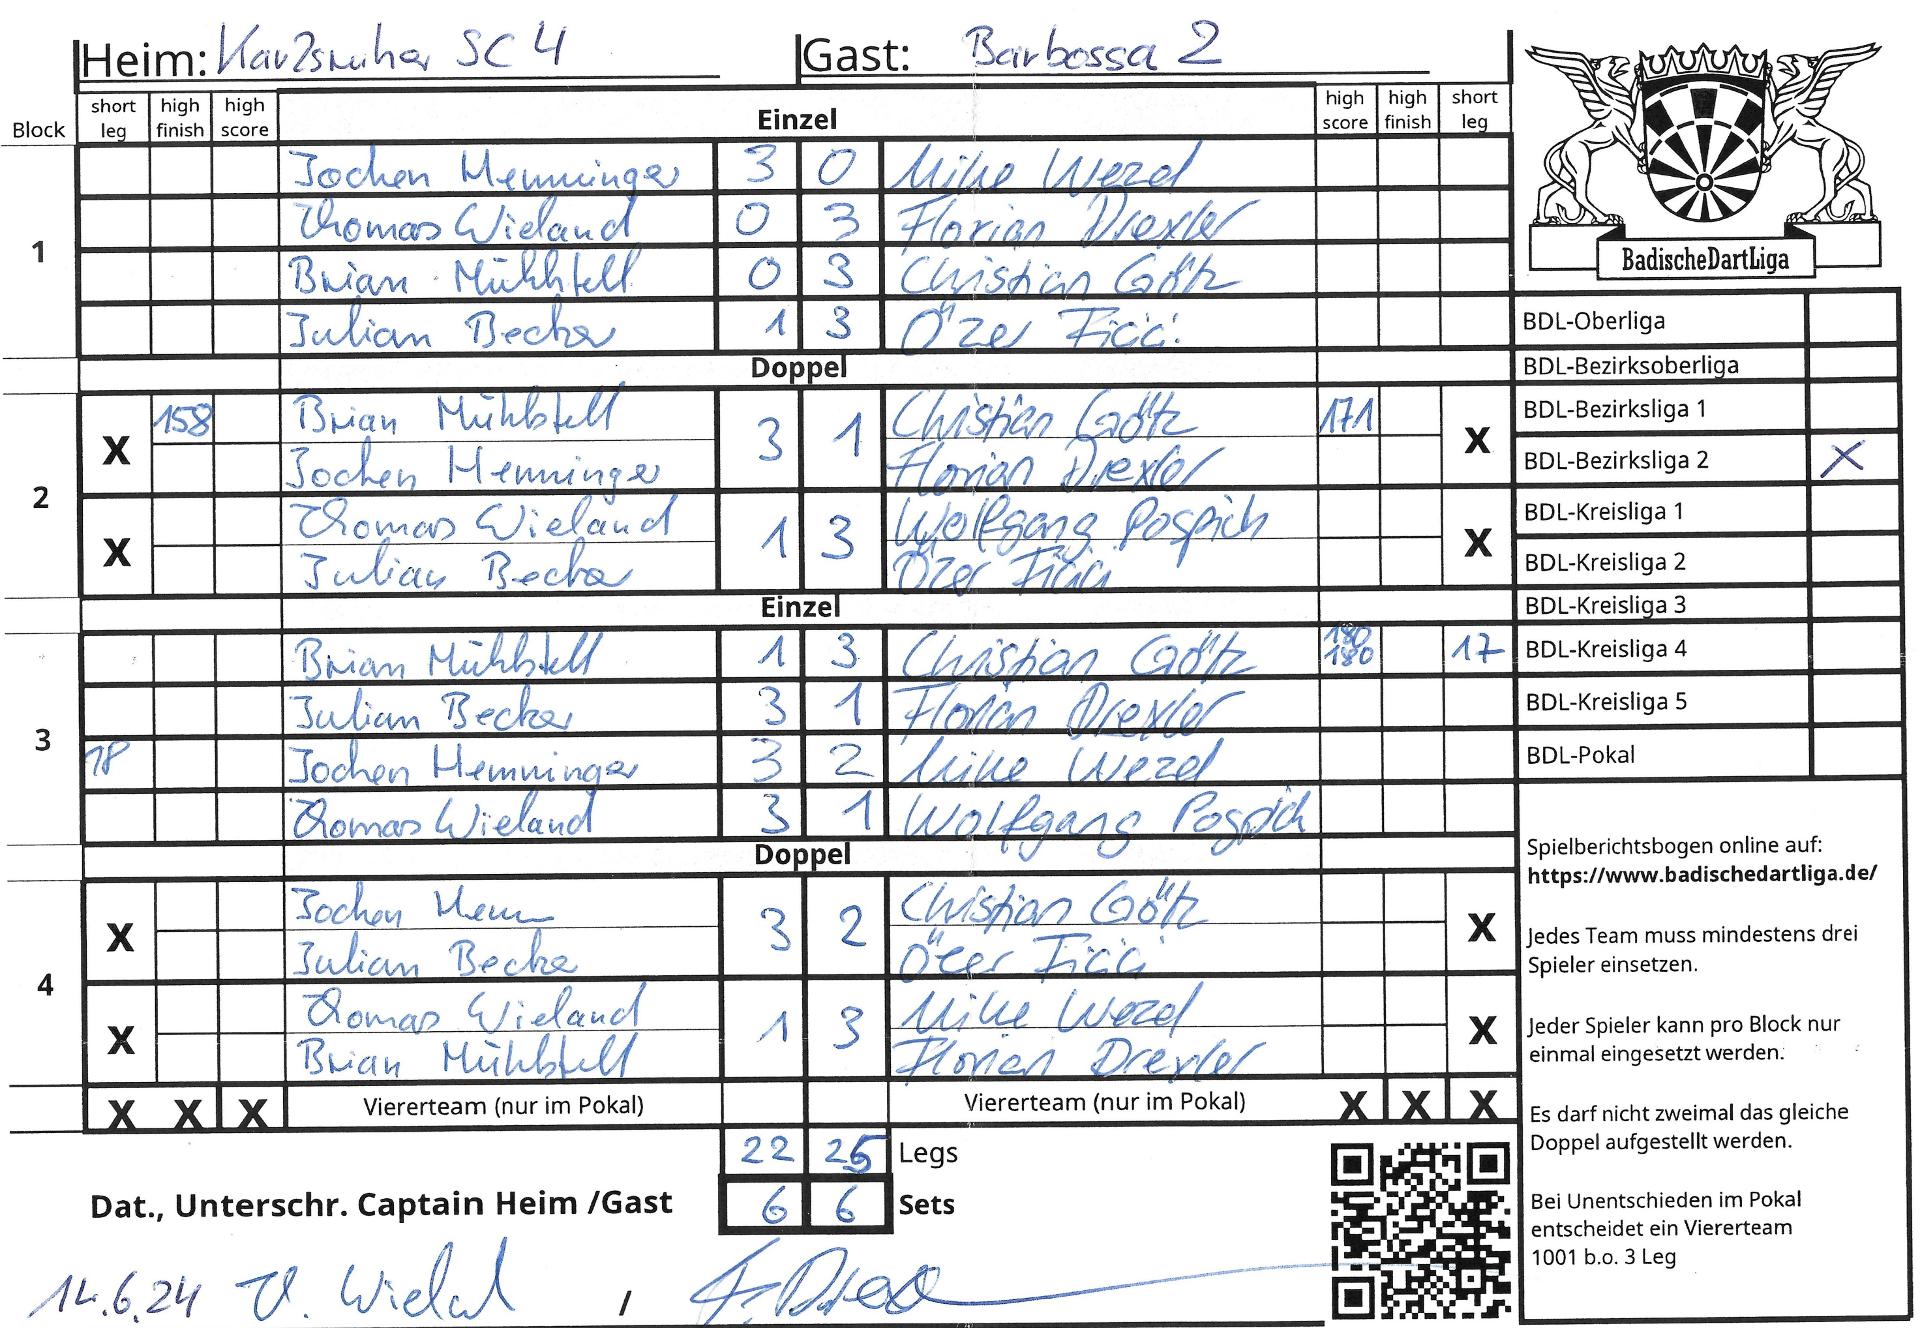 Heim: Karlsruher SC 4 Gast: Barbossa 2
Block short leg high finish high score Einzel high score high finish short leg
1
Jochen Henninger 3 0 Mike Wezel
Thomas Wieland 0 3 Florian Drexler
Brian Mühlstell 0 3 Christian Götz
Julian Becker 1 3 Özer Ficici
Doppel
2
X 158 Brian Mühlstell 3 1 Christian Götz 171 X
Jochen Henninger Florian Drexler
X Thomas Wieland 1 3 Wolfgang Pospich X
Julian Becker Özer Ficici
Einzel
3
Brian Mühlstell 1 3 Christian Götz 180 180 17
Julian Becker 3 1 Florian Drexler
18 Jochen Henninger 3 2 Mike Wezel
Thomas Wieland 3 1 Wolfgang Pospich
Doppel
4
X Jochen Henn 3 2 Christian Götz X
Julian Becker Özer Ficici
X Thomas Wieland 1 3 Mike Wezel X
Brian Mühlstell Florian Drexler
X X X Viererteam (nur im Pokal) Viererteam (nur im Pokal) X X X
22 25 Legs
6 6 Sets
Dat., Unterschr. Captain Heim /Gast
14.6.24 T. Wieland /
BadischeDartLiga
BDL-Oberliga
BDL-Bezirksoberliga
BDL-Bezirksliga 1
BDL-Bezirksliga 2 X
BDL-Kreisliga 1
BDL-Kreisliga 2
BDL-Kreisliga 3
BDL-Kreisliga 4
BDL-Kreisliga 5
BDL-Pokal
Spielberichtsbogen online auf:
https://www.badischedartliga.de/
Jedes Team muss mindestens drei
Spieler einsetzen.
Jeder Spieler kann pro Block nur
einmal eingesetzt werden.
Es darf nicht zweimal das gleiche
Doppel aufgestellt werden.
Bei Unentschieden im Pokal
entscheidet ein Viererteam
1001 b.o. 3 Leg